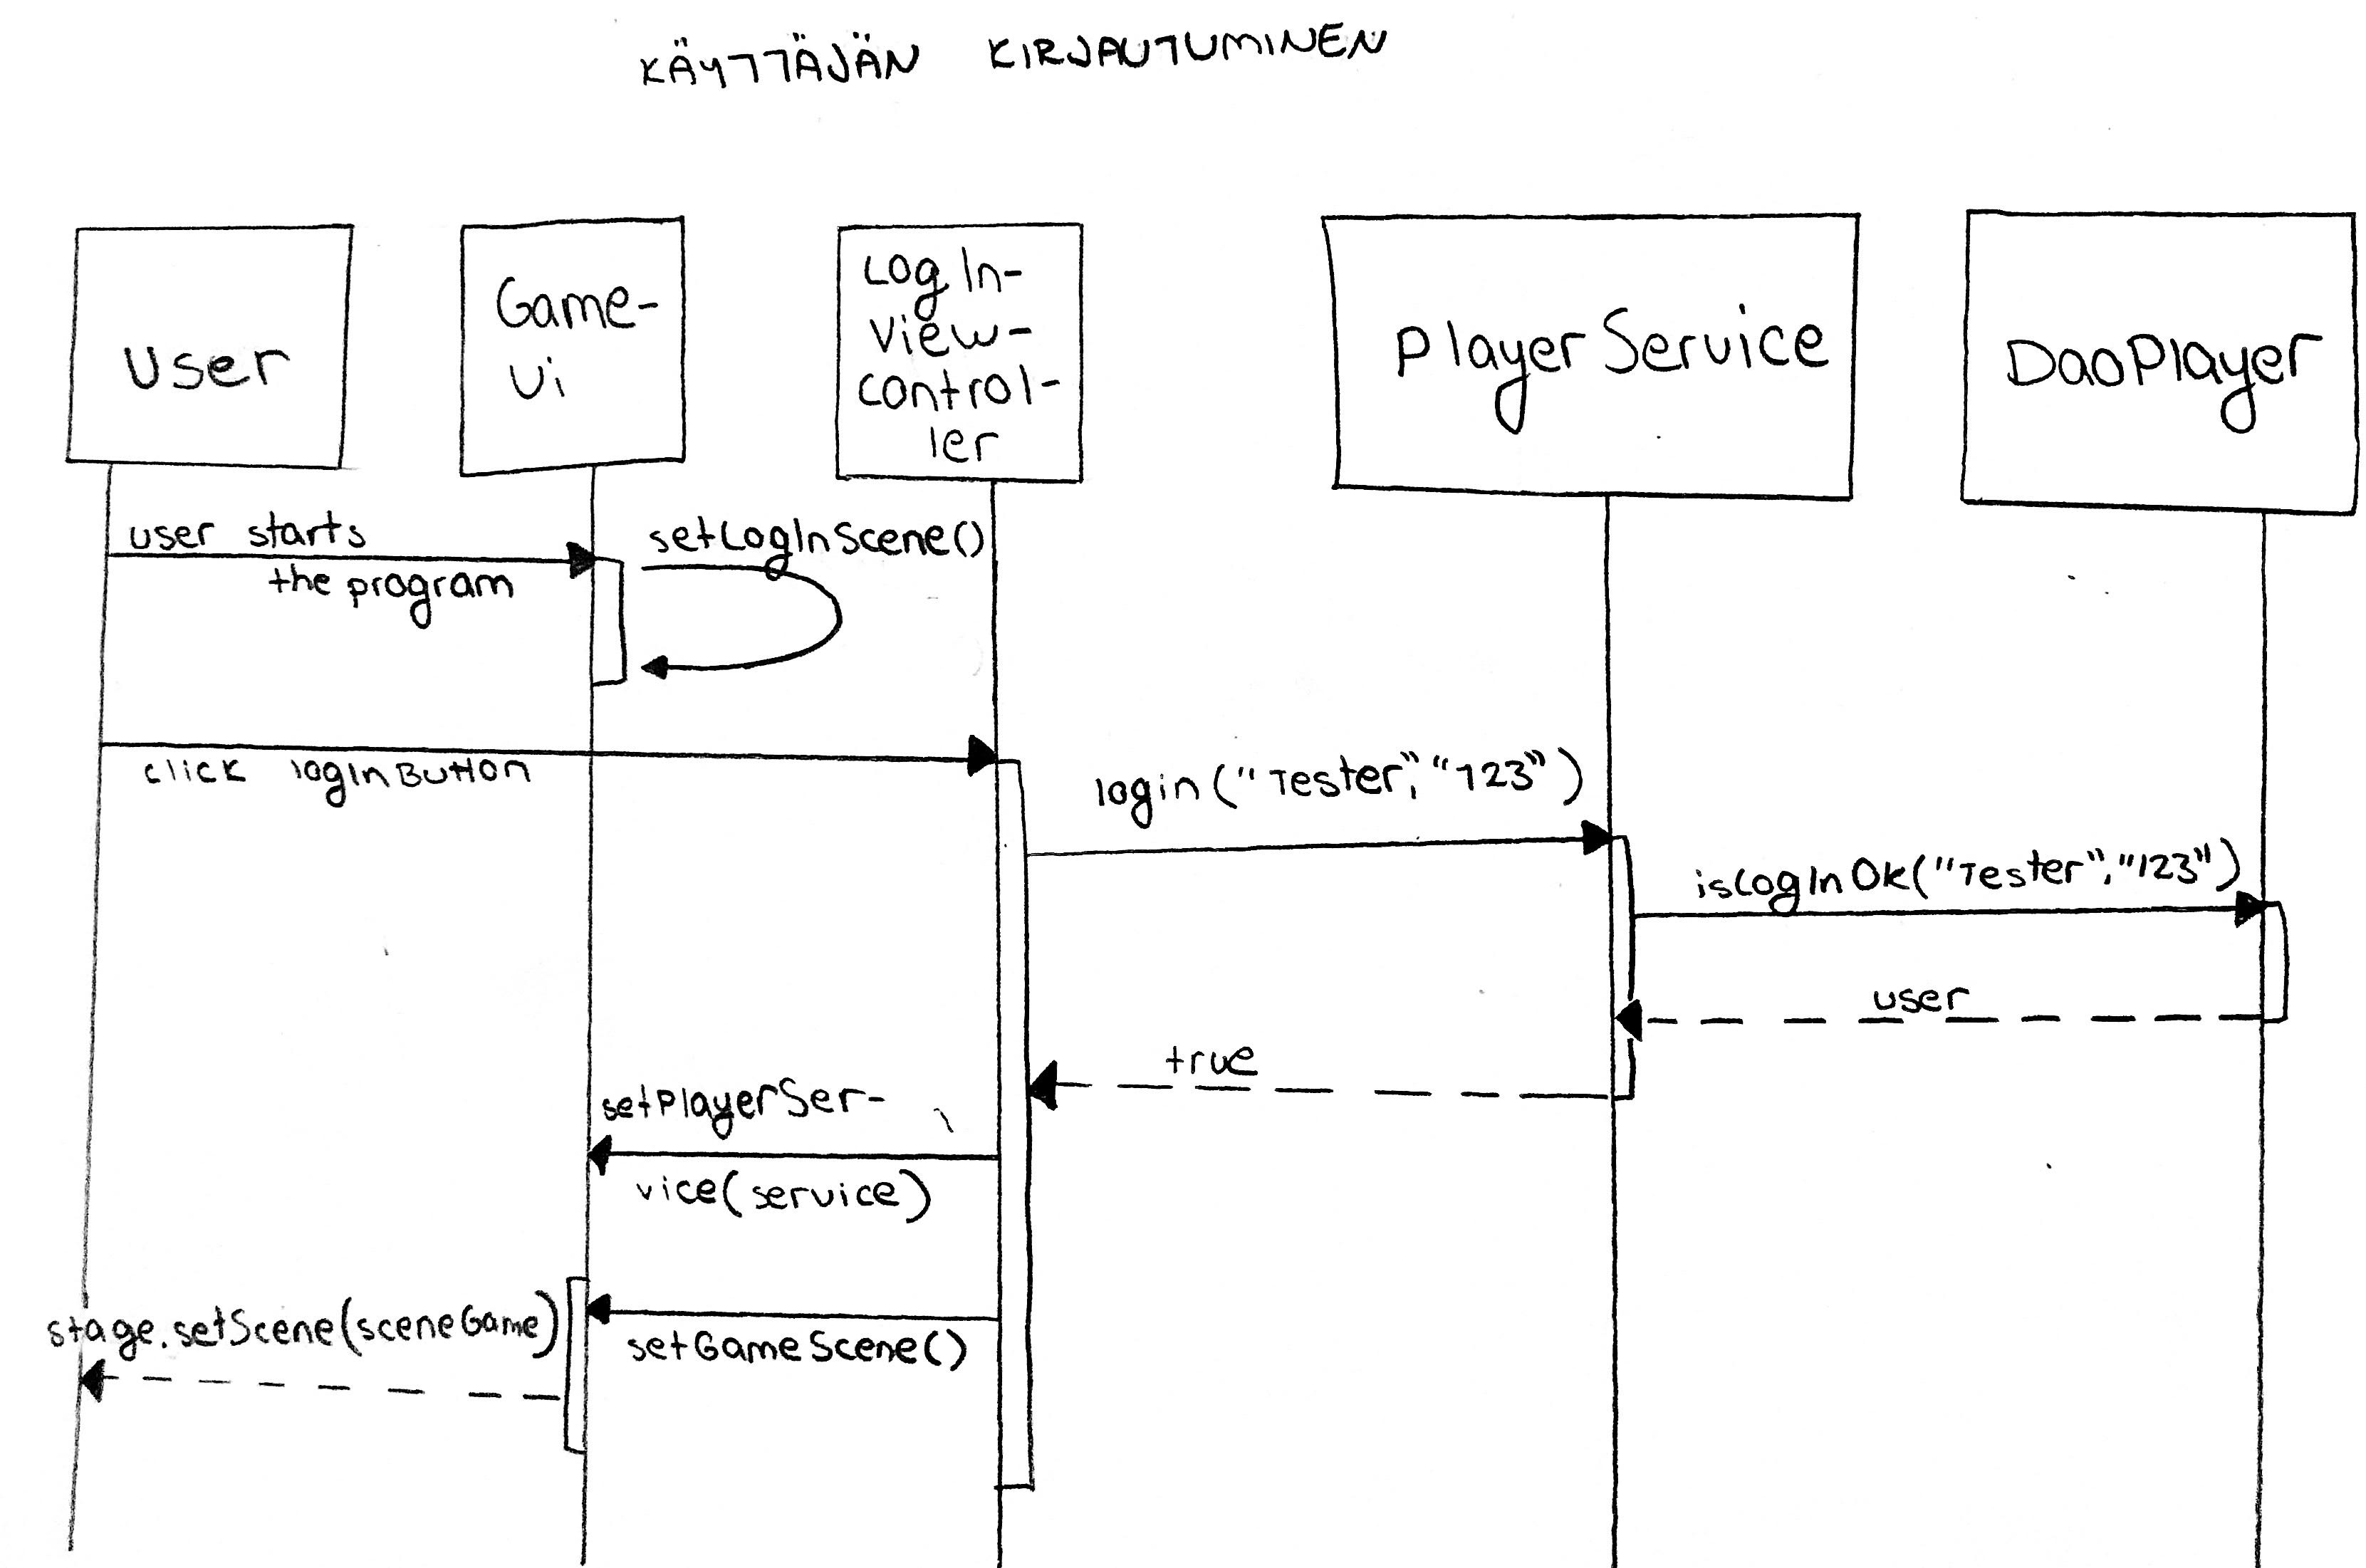 KÄYTTÄJÄN KIRJAUTUMINEN
User
Game-
Ui
Log In-
View-
control-
ler
PlayerService
DaoPlayer
user starts
the program
setLogInScene()
click logInButton
login ("Tester", "123")
isLogInOk("Tester", "123")
user
true
setPlayerSer-
vice(service)
setGameScene()
stage.setScene(sceneGame)